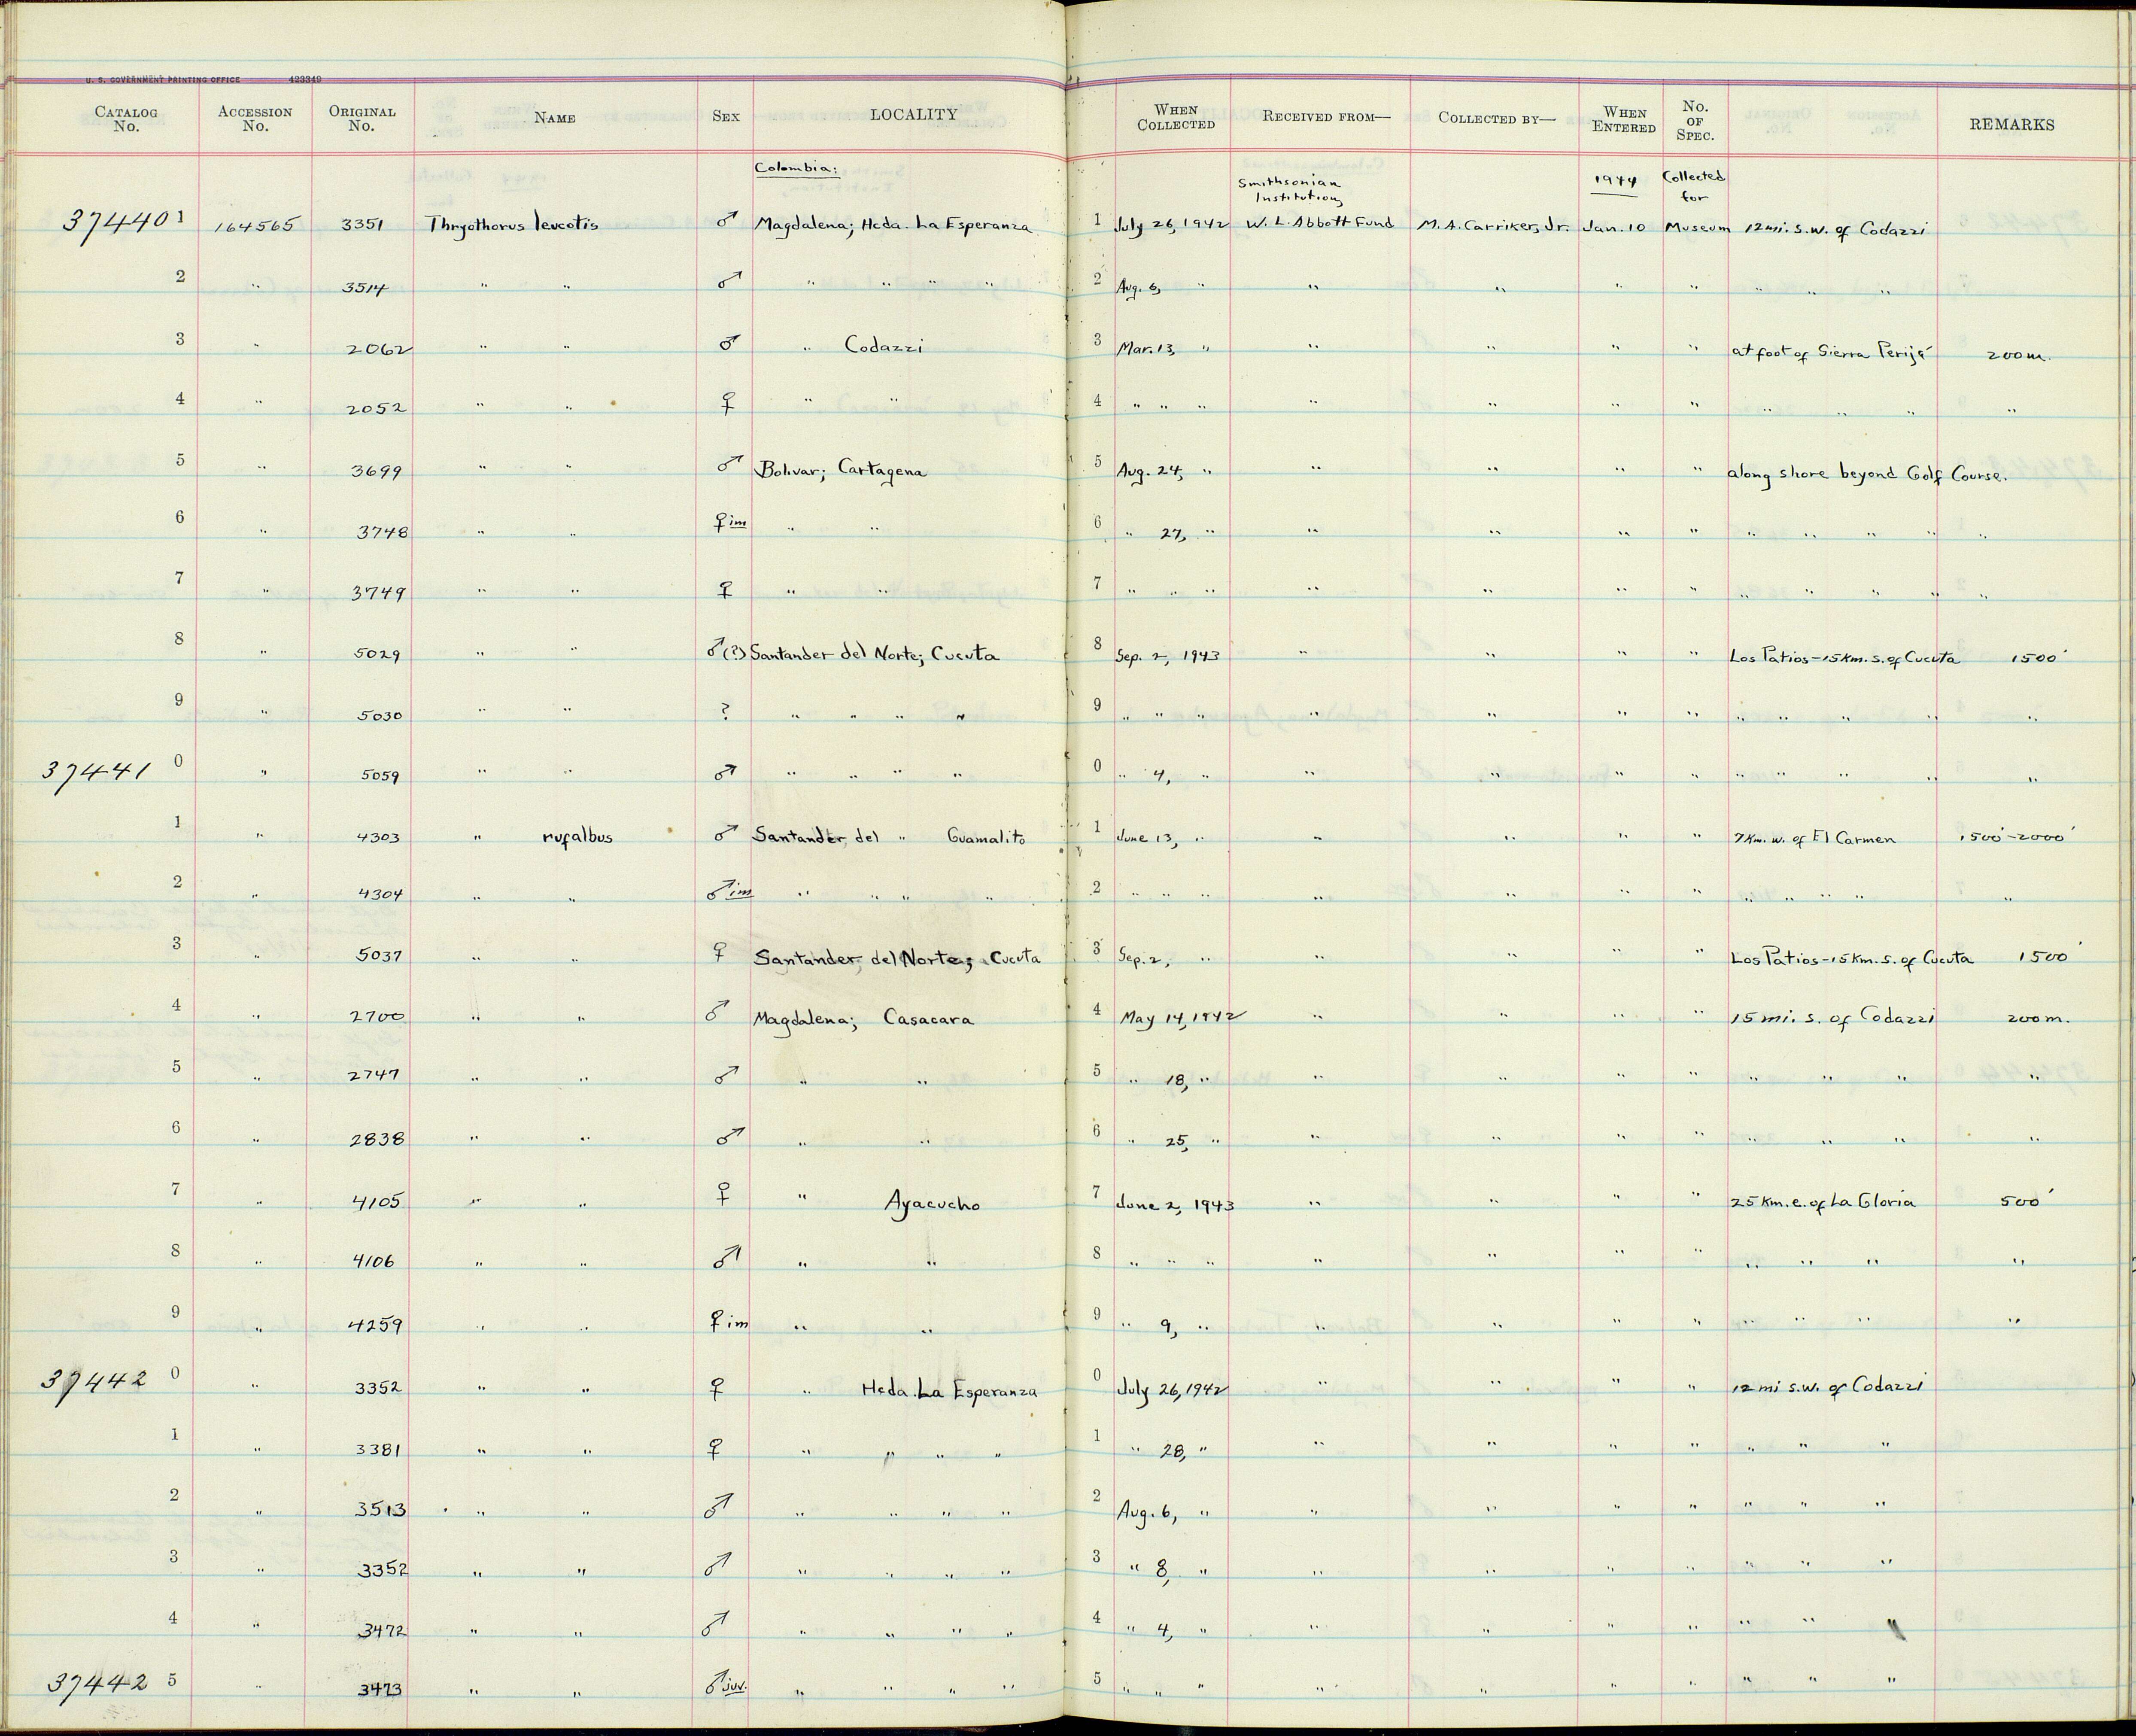 U. S. GOVERNMENT PRINTING OFFICE 423349
CATALOG No. ACCESSION No. ORIGINAL No. NAME SEX LOCALITY WHEN COLLECTED RECEIVED FROM— COLLECTED BY— WHEN ENTERED No. OF SPEC. REMARKS
Colombia: Smithsonian Institution, 1944 Collected for
37440 1 164565 3351 Thryothorus leucotis ♂ Magdalena; Hcda. La Esperanza 1 July 26, 1942 W. L. Abbott Fund M. A. Carriker, Jr. Jan. 10 Museum 12 mi. s.w. of Codazzi
2 " 3514 " " ♂ " " " " 2 Aug. 6, " " " " " " " "
3 " 2062 " " ♂ " Codazzi 3 Mar. 13, " " " " " at foot of Sierra Perijá 200 m.
4 " 2052 " " ♀ " " 4 " " " " " " " " " " "
5 " 3699 " " ♂ Bolivar; Cartagena 5 Aug. 24, " " " " " along shore beyond Golf Course.
6 " 3748 " " ♀ im " " 6 " 27, " " " " " " " " " "
7 " 3749 " " ♀ " " 7 " " " " " " " " " " " "
8 " 5029 " " ♂(?) Santander del Norte; Cucuta 8 Sep. 2, 1943 " " " " Los Patios-15 Km. s. of Cucuta 1500'
9 " 5030 " " ? " " " " 9 " " " " " " " " " " " "
37441 0 " 5059 " " ♂ " " " " 0 " 4, " " " " " " " " " "
1 " 4303 " rufalbus ♂ Santander del " Guamalito 1 June 13, " " " " " 7 Km. w. of El Carmen 1500'-2000'
2 " 4304 " " ♂ im " " " " 2 " " " " " " " " " " " "
3 " 5037 " " ♀ Santander del Norte; Cucuta 3 Sep. 2, " " " " " Los Patios-15 Km. s. of Cucuta 1500'
4 " 2700 " " ♂ Magdalena; Casacara 4 May 14, 1942 " " " " 15 mi. s. of Codazzi 200 m.
5 " 2747 " " ♂ " " 5 " 18, " " " " " " " " "
6 " 2838 " " ♂ " " 6 " 25, " " " " " " " " "
7 " 4105 " " ♀ " Ayacucho 7 June 2, 1943 " " " " 25 Km. e. of La Gloria 500'
8 " 4106 " " ♂ " " 8 " " " " " " " " " " "
9 " 4259 " " ♀ im " " 9 " 9, " " " " " " " " "
37442 0 " 3352 " " ♀ " Hcda. La Esperanza 0 July 26, 1942 " " " " 12 mi s.w. of Codazzi
1 " 3381 " " ♀ " " " " 1 " 28, " " " " " " " "
2 " 3513 " " ♂ " " " " 2 Aug. 6, " " " " " " " "
3 " 3352 " " ♂ " " " " 3 " 8, " " " " " " " "
4 " 3472 " " ♂ " " " " 4 " 4, " " " " " " " "
37442 5 " 3473 " " ♂ juv. " " " " 5 " " " " " " " " " "